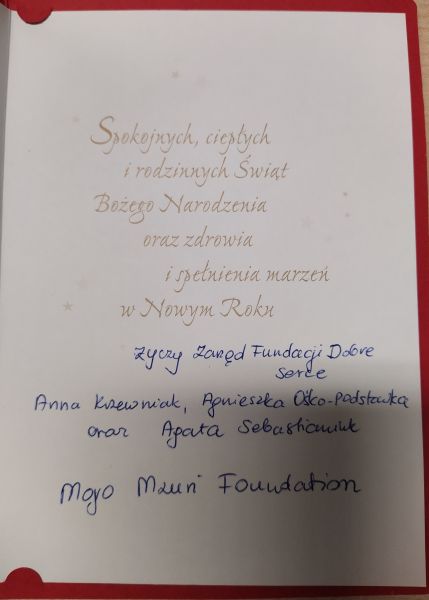 Spokojnych, ciepłych
i rodzinnych Świąt
Bożego Narodzenia
oraz zdrowia
i spełnienia marzeń
w Nowym Roku
życzy Zarząd Fundacji Dobre
Serce
Anna Krzewniak, Agnieszka Ośko-Padstawka
oraz Agata Sebastianiuk
Moyo Mzuri Foundation